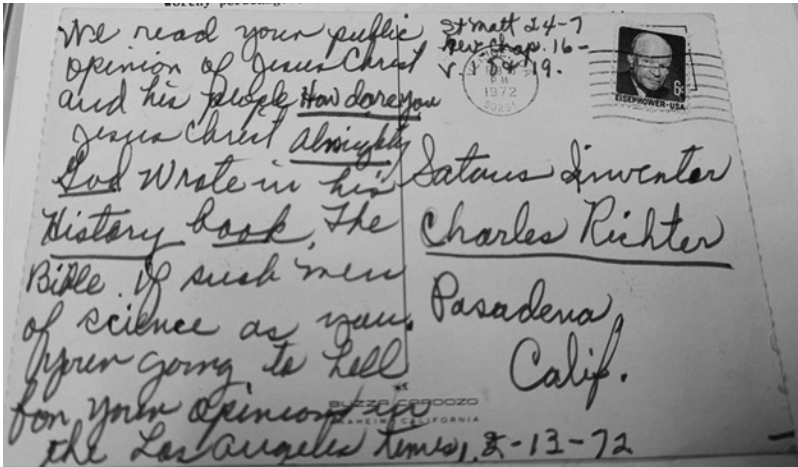 worthy personag
We read your public
opinion of Jesus Christ
and his people How dare you
Jesus Christ Almighty
God Wrote in his
History book, The
Bible. of such men
of science as you.
Your going to hell
for your opinions in
the Los Angeles Times, 2-13-72
St Matt 24-7
Rev Chap. 16-
V. 18 & 19.
PM
1972
EISENHOWER·USA
6c
Satans Inventor
Charles Richter
Pasadena,
Calif.
BUZZA CARDOZO
ANAHEIM, CALIFORNIA